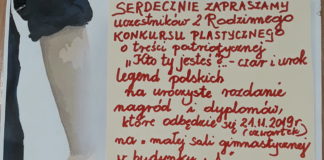 SERDECZNIE ZAPRASZAMY
uczestników 2 Rodzinnego
KONKURSU PLASTYCZNEGO
o treści patriotycznej
"Kto ty jesteś?... - czar i urok
legend polskich
na uroczyste rozdanie
nagród i dyplomów,
które odbędzie się 21.11.2019r
(czwartek)
na małej sali gimnastycznej
w budynku